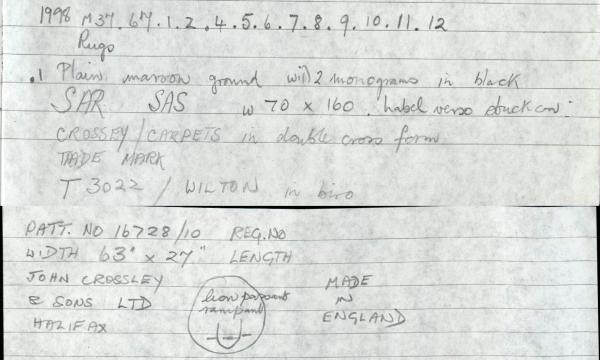 1998 M37.67.1.2.4.5.6.7.8.9.10.11.12
Rugs
.1 Plain maroon ground with 2 monograms in black
SAR SAS w 70 x 160. Label verso stuck on:
CROSSEY/CARPETS in double cross form
TRADE MARK
T 3022 / WILTON in biro
PATT. NO 16728/10 REG.NO
WIDTH 63" x 27" LENGTH
JOHN CROSSLEY MADE
& SONS LTD lion passant rampant IN
HALIFAX ENGLAND